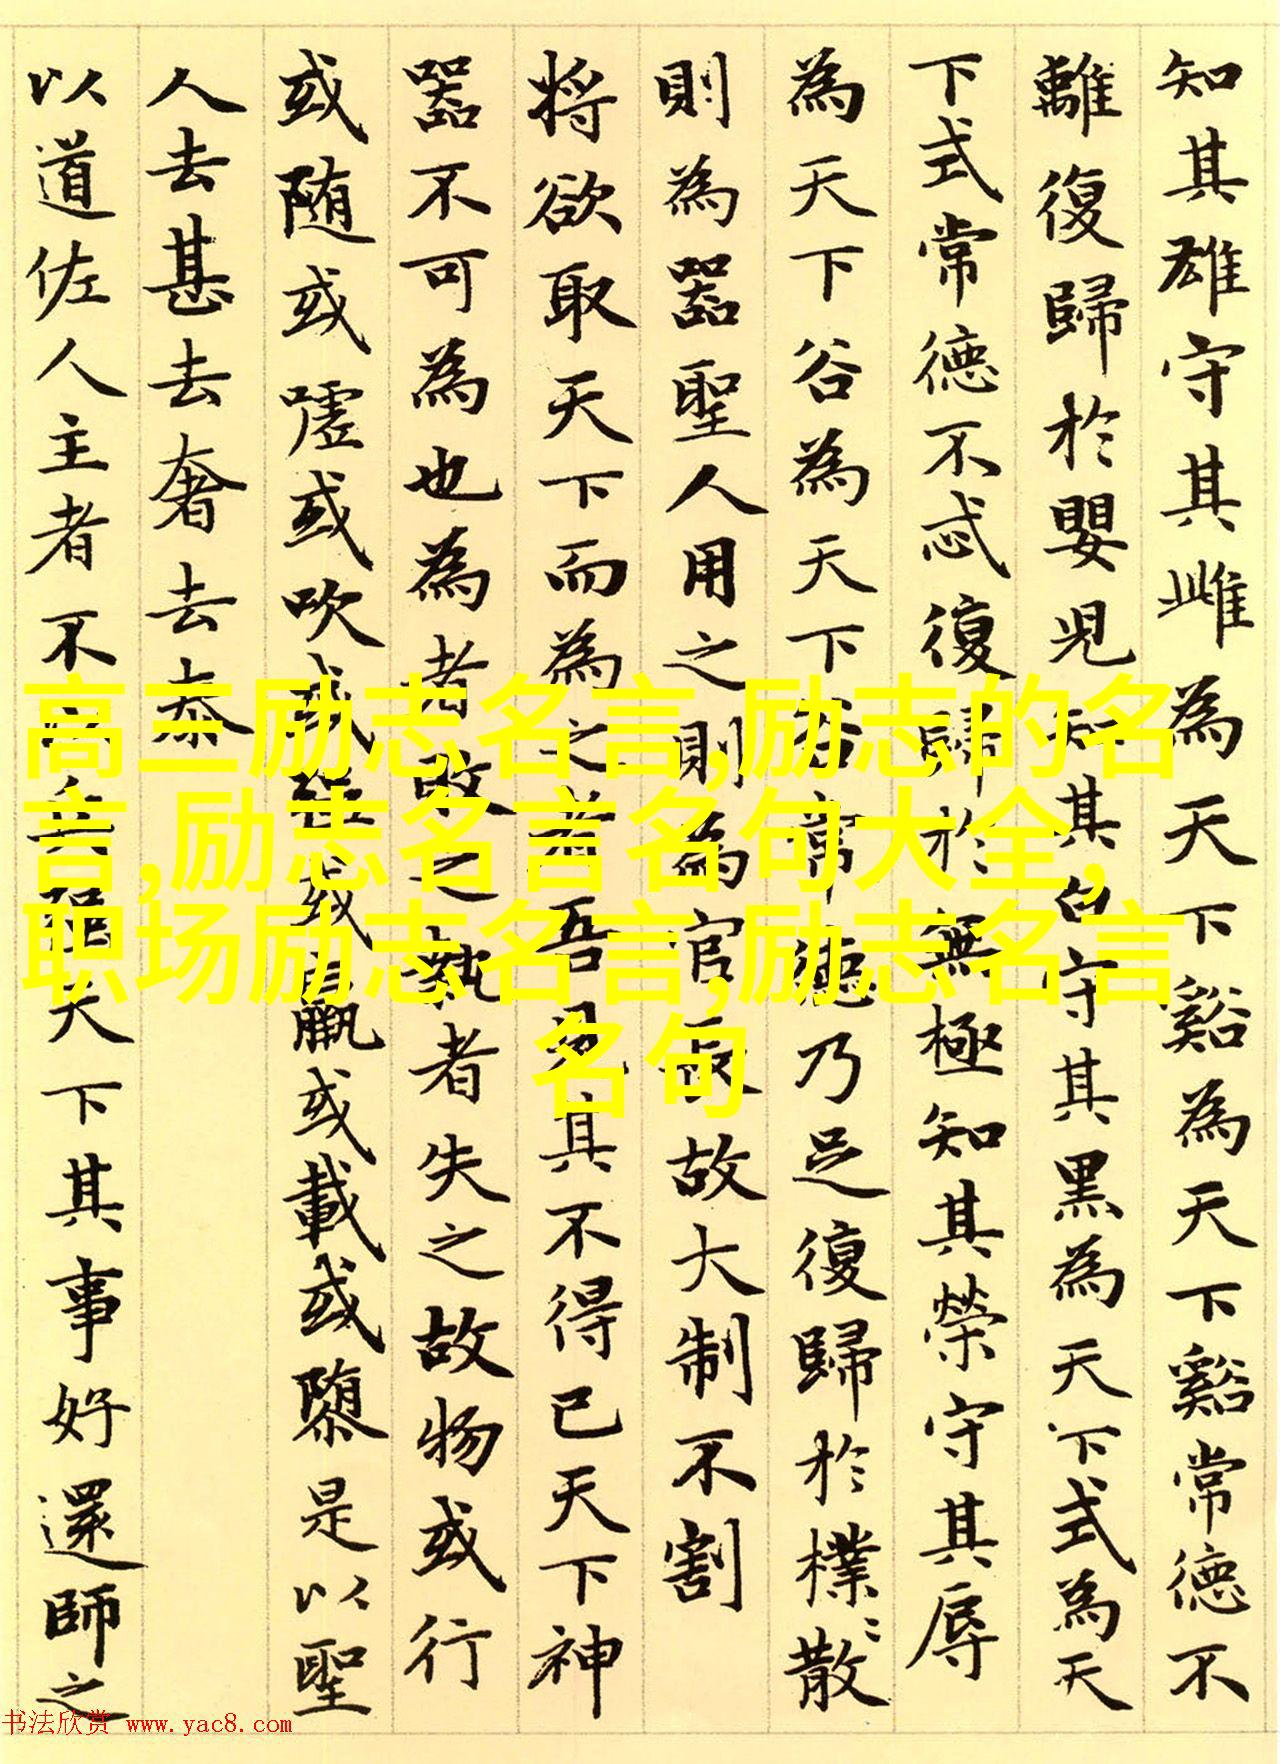 知其雄守其雌為天下谿為天下谿常德不
離復歸於嬰児知其白守其黑為天下式為天
下式常德不忒復歸於無極知其榮守其辱
為天下谷為天下谷常德乃足復歸於樸〻散
則為器聖人用之則為官長故大制不割
将欲取天下而為之者吾見其不得已天下神
器不可為也為者敗之執者失之故物或行
或随或噓或吹或強或羸或載或隳是以聖
人去甚去奢去泰
以道佐人主者不以兵強天下其事好還師之
高三励志名言,励志的名
言,励志名言名句大全,
职场励志名言,励志名言
名句
书法欣赏 www.yac8.com